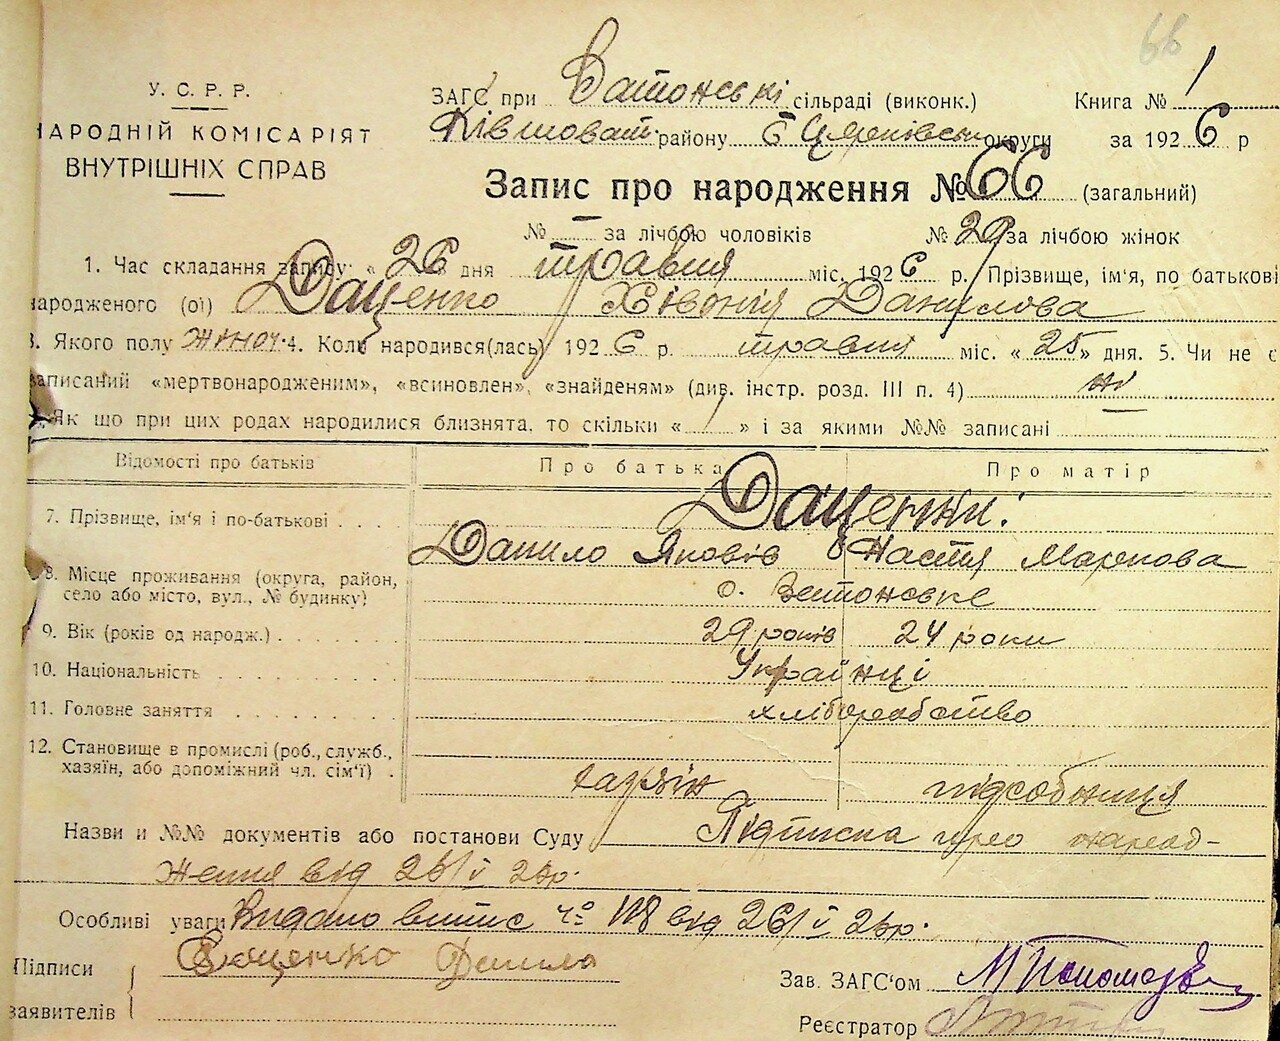 66
У. С. Р. Р.
НАРОДНІЙ КОМІСАРІЯТ
ВНУТРІШНІХ СПРАВ
ЗАГС при сільраді (виконк.) Книга № 1
Ківшоват. району Б Церківськ округи за 1926 р
Запис про народження № 66 (загальний)
№ — за лічбою чоловіків № 29 за лічбою жінок
1. Час складання запису: « 26 » дня травня міс. 1926 р. Прізвище, ім'я, по батькові
народженого (ої) Даценко Хівонія Данилова
3. Якого полу жіноч. 4. Коли народився(лась) 1926 р. травня міс. « 25 » дня. 5. Чи не є
записаний «мертвонародженим», «всиновлен», «знайденям» (див. інстр. розд. III п. 4) ні
Як що при цих родах народилися близнята, то скільки « / » і за якими №№ записані
Відомості про батьків Про батька Про матір
7. Прізвище, ім'я і по-батькові Даценки:
Данило Яковів Настя Маркова
8. Місце проживання (округа, район,
село або місто, вул., № будинку) с.
9. Вік (років од народж.) 29 років 24 роки
10. Національність Українці
11. Головне заняття хліборобство
12. Становище в промислі (роб., служб.,
хазяїн, або допоміжний чл. сім'ї) хазяїн підсобниця
Назви и №№ документів або постанови Суду Підписка про народ-
ження від 26/V 26р.
Особливі уваги Видано витис ч° 118 від 26/V 26р.
Підписи Даценко Данило
заявителів
Зав. ЗАГС'ом
Реєстратор